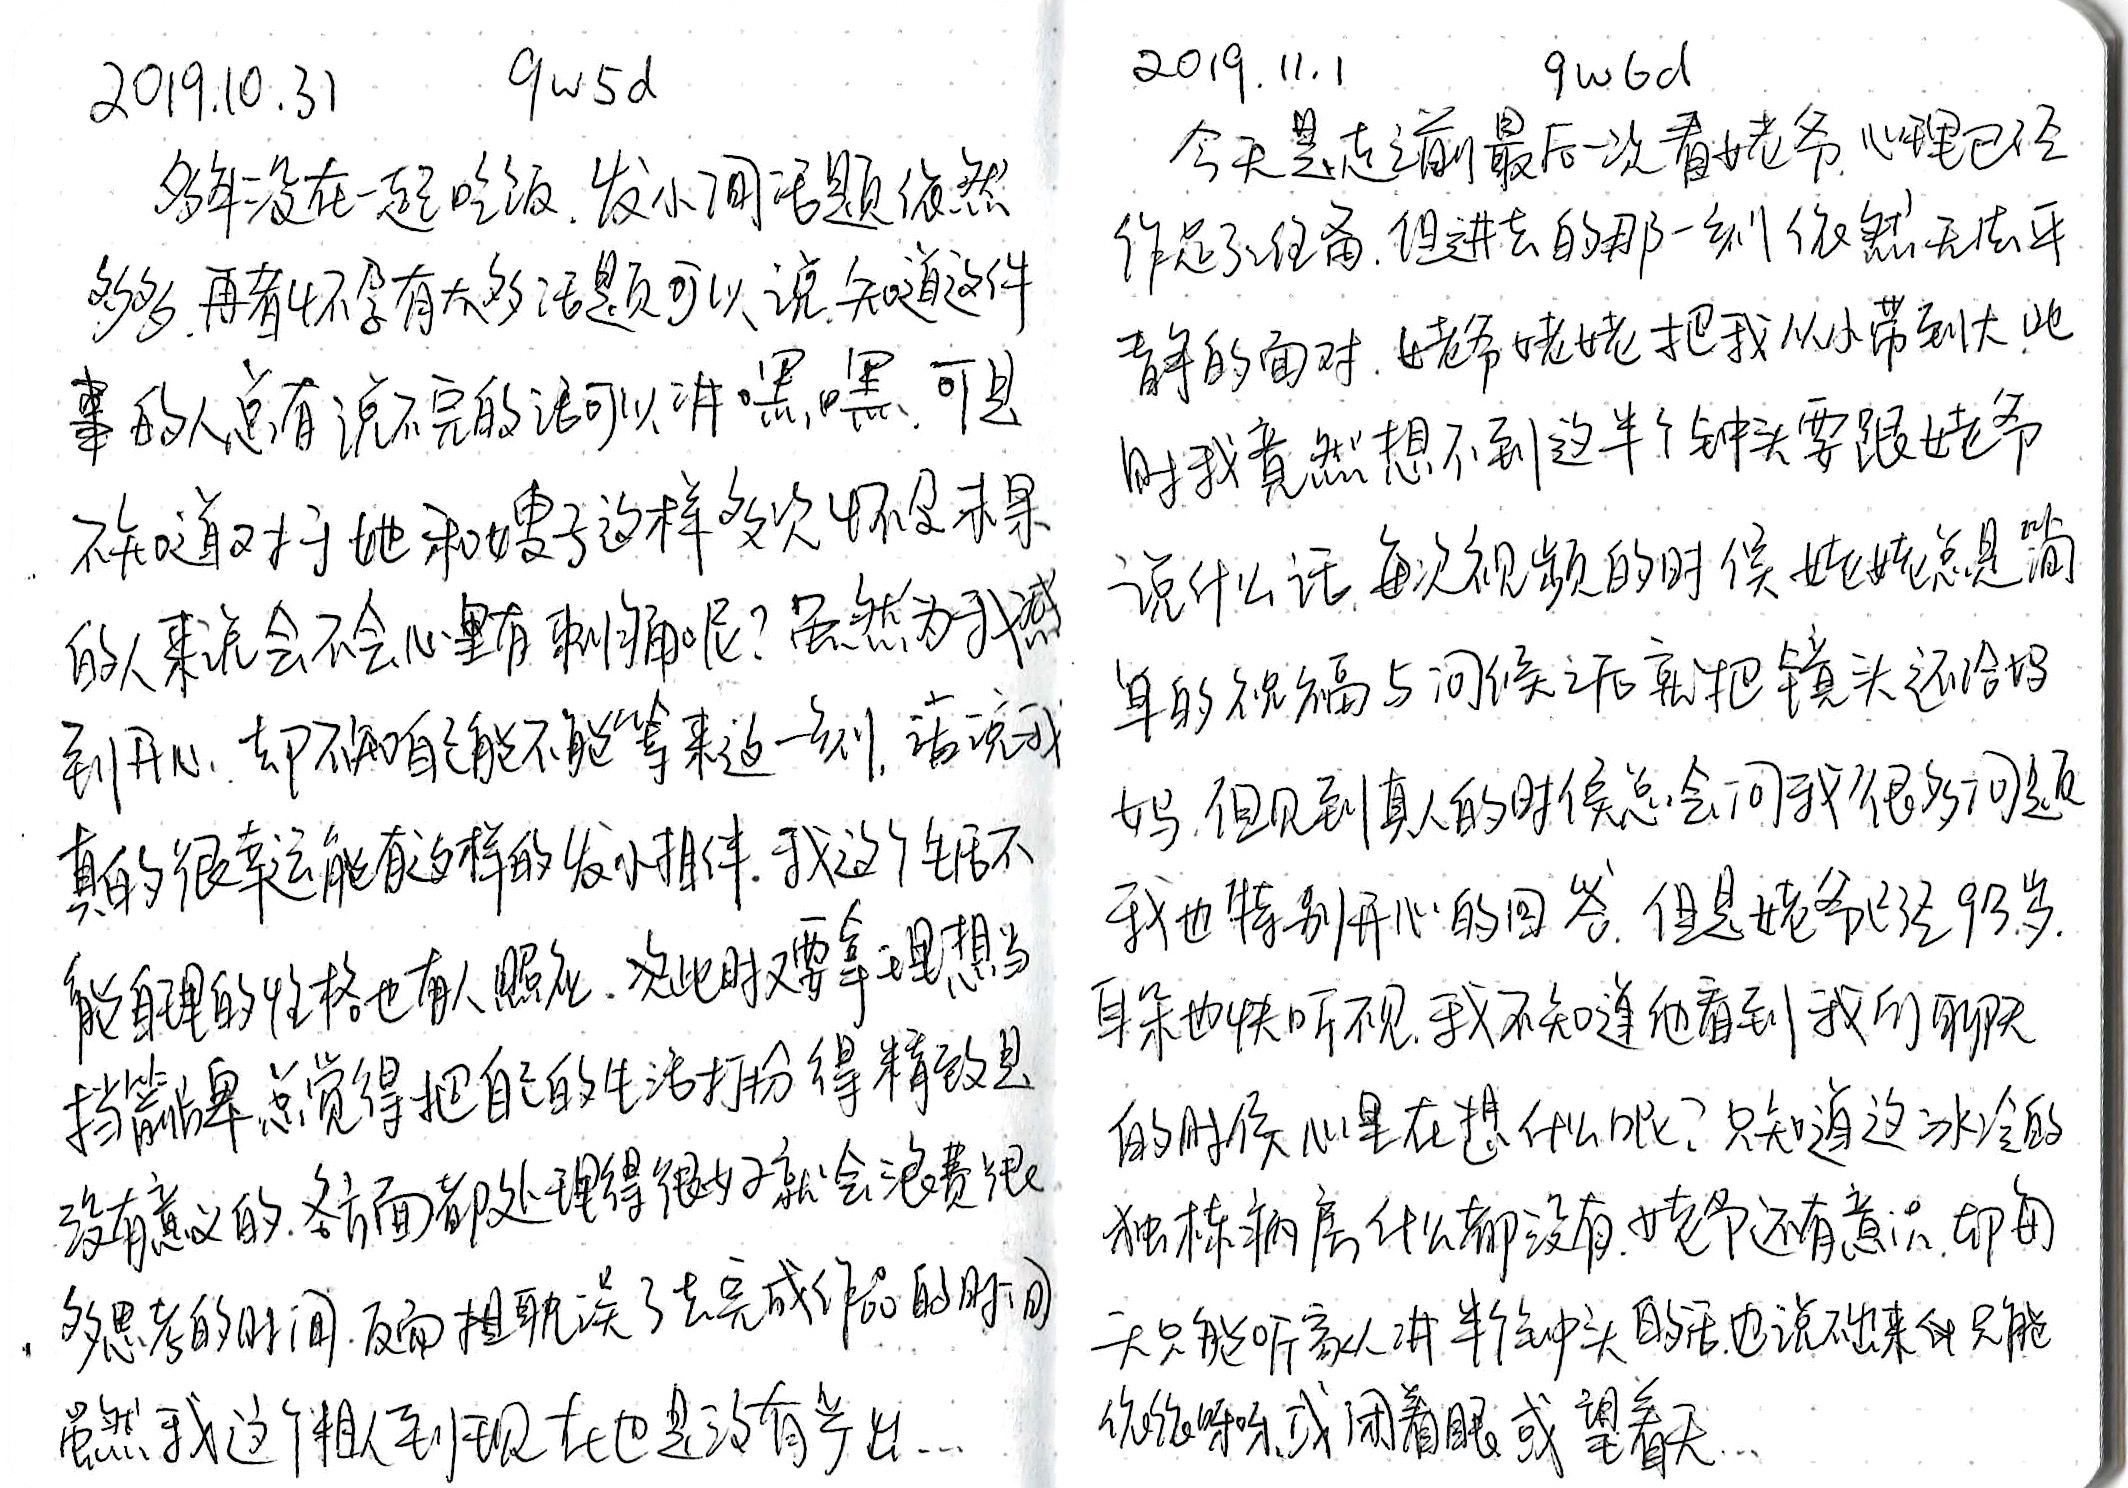 2019.10.31 9w5d
多年没在一起吃饭.发小间话题依然
多多.再者怀孕有太多话题可以说.知道这件
事的人总有说不完的话可以讲嘿嘿.可是
不知道对于她和嫂子这样多次怀没未果
的人来说会不会心里有刺痛呢?虽然为我感
到开心.却不知自己能不能等来这一刻.话说我
真的很幸运能有这样的发小相伴.我这个生活不
能自理的性格也有人照应.次此时又要拿理想当
挡箭牌.总觉得把自己的生活打扮得精致是
没有意义的.各方面都处理得很好就会浪费很
多思考的时间.反而耽误了去完成作品的时间
虽然我这个粗人到现在也是没有产出...
2019.11.1 9w6d
今天是走之前最后一次看姥爷.心理已经
作足了准备.但进去的那一刻依然无法平
静的面对.姥爷姥姥把我从小带到大.此
时我竟然想不到这半个钟头要跟姥爷
说什么话.每次视频的时侯姥姥总是简
单的祝福与问候之后就把镜头还给妈
妈.但见到真人的时侯总会问我很多问题
我也特别开心的回答.但是姥爷已经93岁.
耳朵也快听不见.我不知道他看到我们聊天
的时侯心里在想什么呢?只知道这冰冷的
独栋病房什么都没有.姥爷还有意识.却每
天只能听家人讲半个钟头的话.也说不出来什只能
依依呀呀.或闭着眼或望着天...